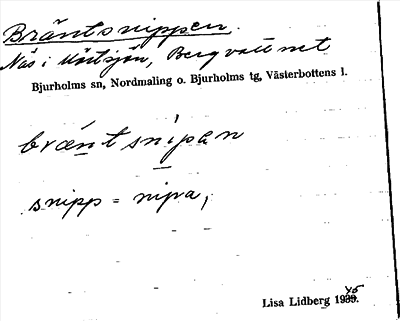 Bräntsnippen.
Näs i Mörtsjön, Bergvattnet
Bjurholms sn, Nordmaling o. Bjurholms tg, Västerbottens l.
bræntsnipan
snipp = nipa,
Lisa Lidberg 1945.